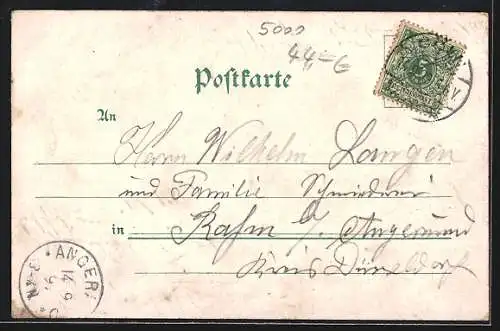 5000
44,=6
Postkarte
5
An
Herrn Wilhelm Langen
und Familie Schmiederei
in Rahm b/ Angermund
Kreis Düsseldorf
ANGER
14 6